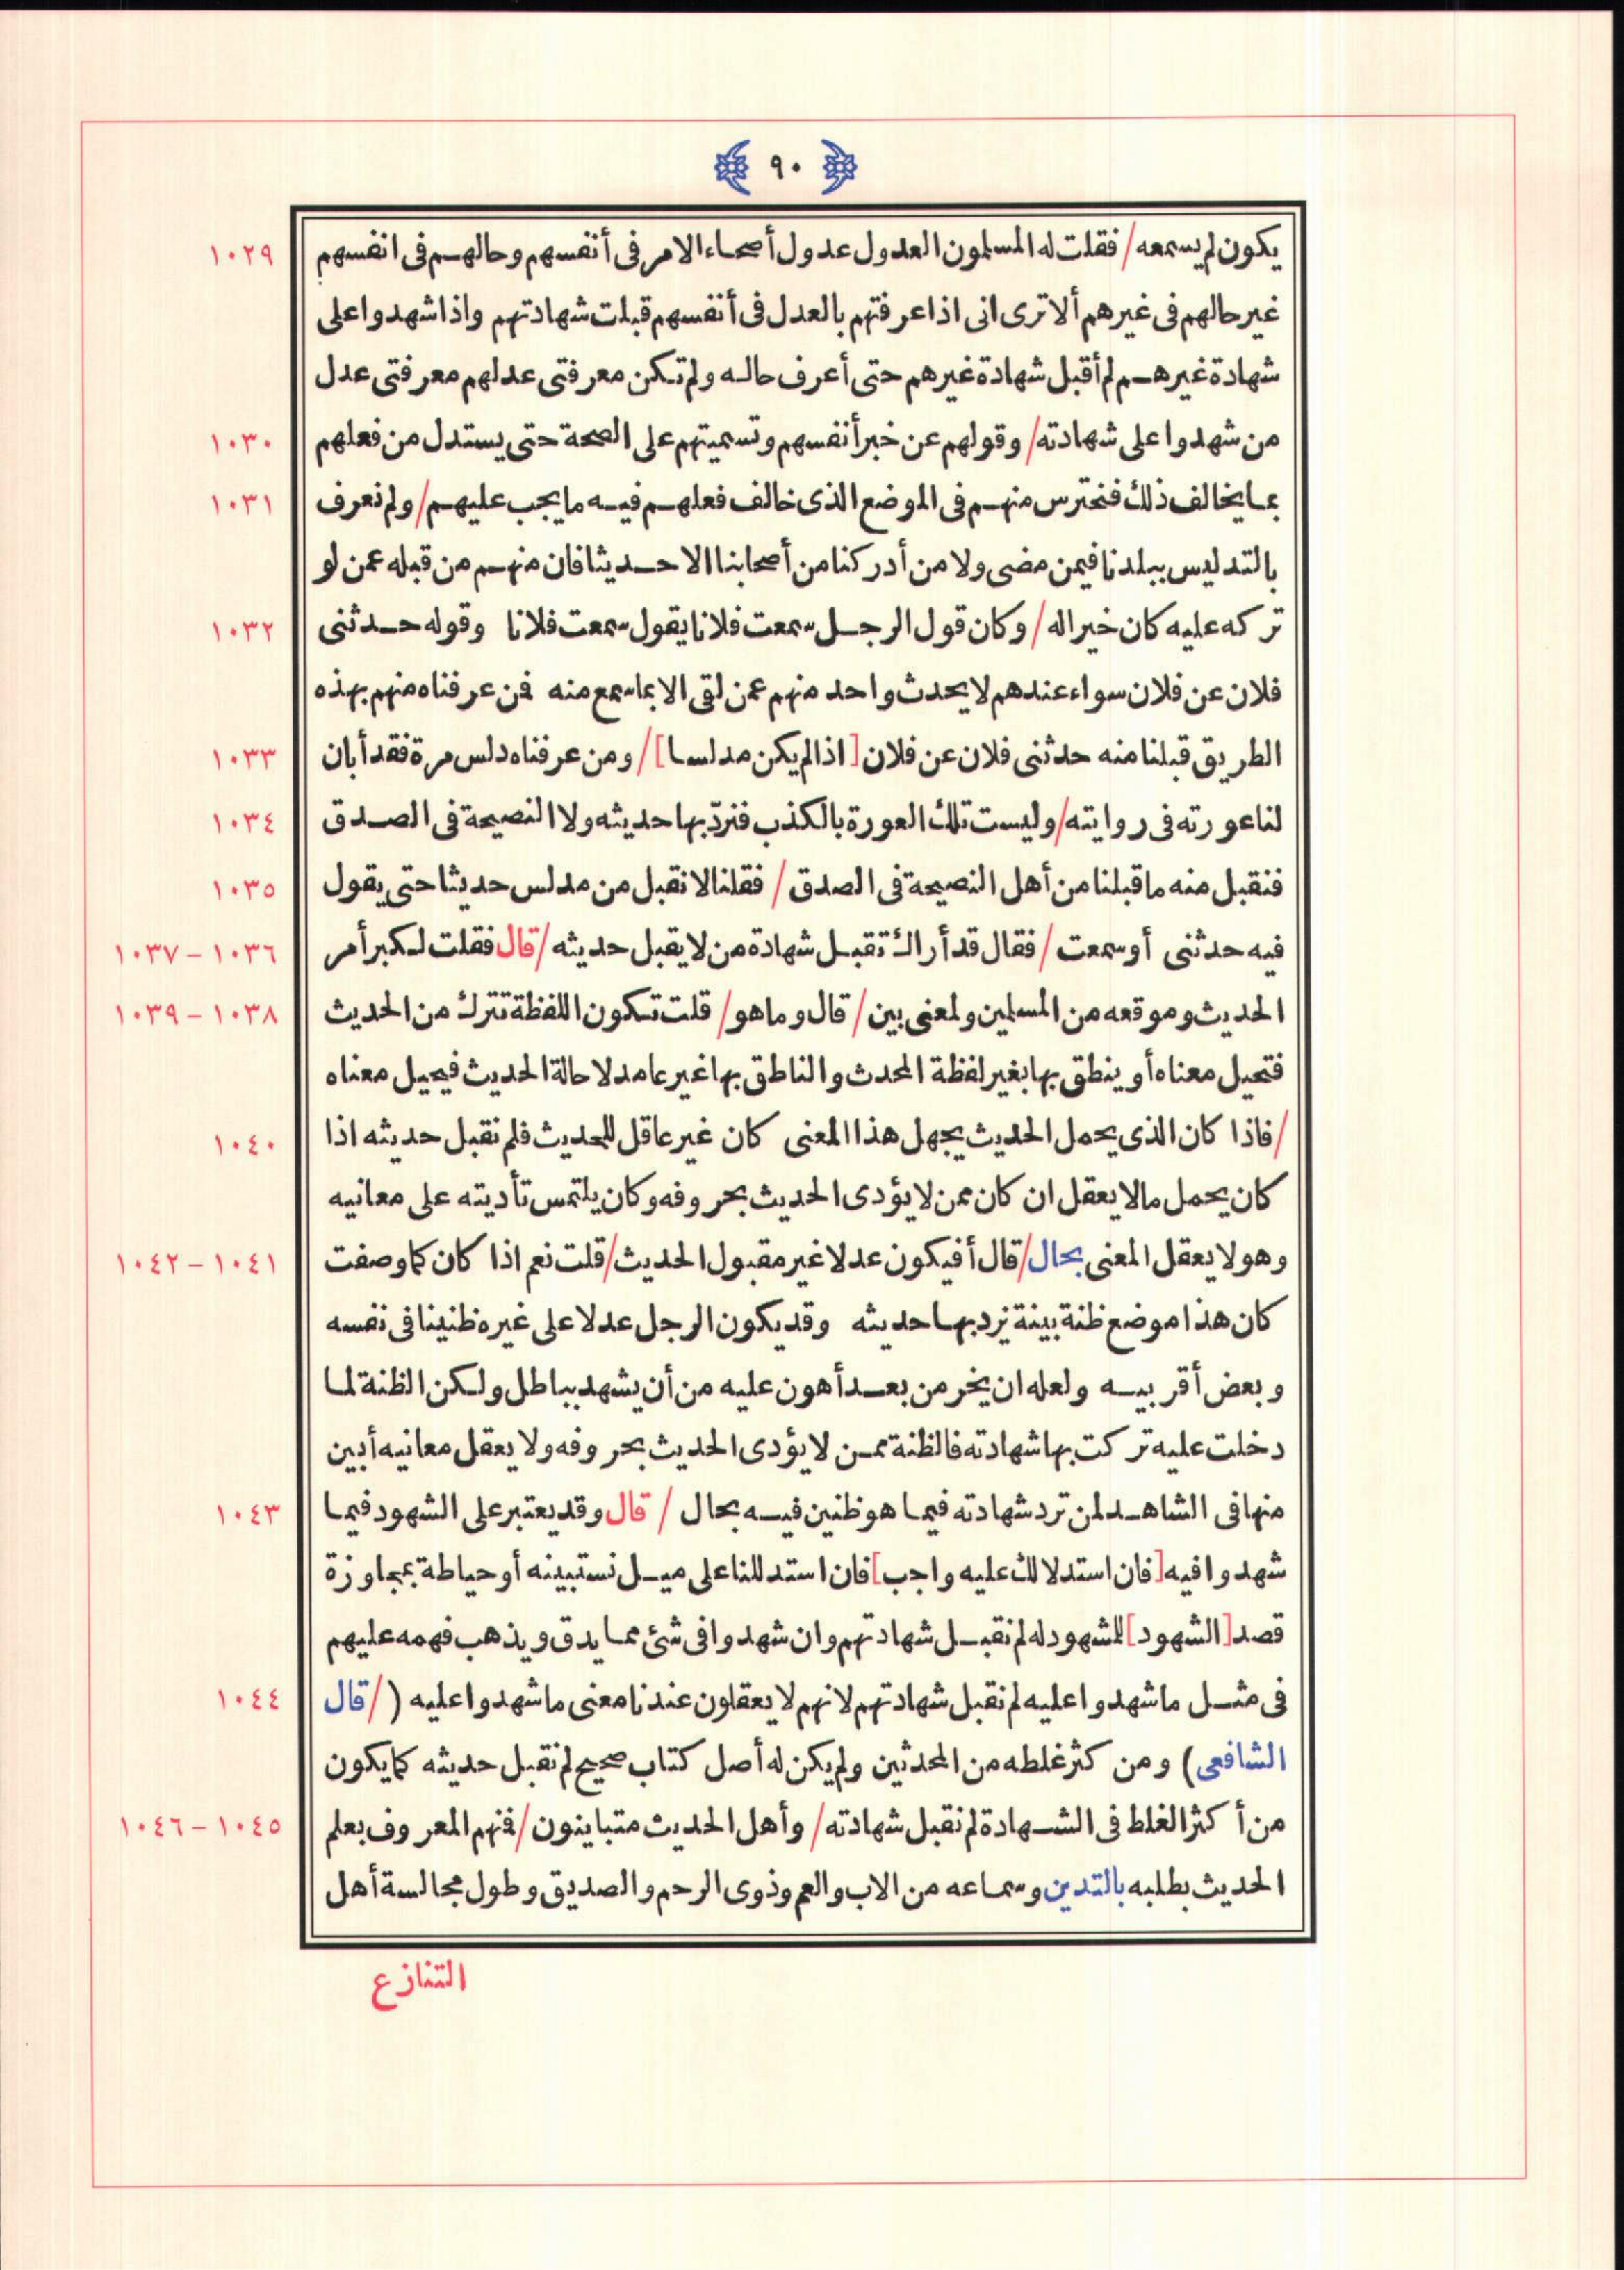 ٩٠
١٠٢٩ يكون لم يسمعه / فقلت له المسلمون العدول عدول أصحاء الامر فى أنفسهم وحالهم فى انفسهم
غير حالهم فى غيرهم ألا ترى انى اذا عرفتهم بالعدل فى أنفسهم قبلت شهادتهم واذا شهدوا على
شهادة غيرهم لم أقبل شهادة غيرهم حتى أعرف حاله ولم تكن معرفتى عدلهم معرفتى عدل
١٠٣٠ من شهدوا على شهادته / وقولهم عن خبر أنفسهم وتسميتهم على الصحة حتى يستدل من فعلهم
١٠٣١ بما يخالف ذلك فنحترس منهم فى الموضع الذى خالف فعلهم فيه ما يجب عليهم / ولم نعرف
بالتدليس ببلدنا فيمن مضى ولا من أدركنا من أصحابنا الا حديثا فان منهم من قبله عمن لو
١٠٣٢ تركه عليه كان خيرا له / وكان قول الرجل سمعت فلانا يقول سمعت فلانا وقوله حدثنى
فلان عن فلان سواء عندهم لا يحدث واحد منهم عمن لقى الا بما سمع منه فمن عرفناه منهم بهذه
١٠٣٣ الطريق قبلنا منه حدثنى فلان عن فلان [اذا لم يكن مدلسا] / ومن عرفناه دلس مرة فقد أبان
١٠٣٤ لنا عورته فى روايته / وليست تلك العورة بالكذب فنردّ بها حديثه ولا النصيحة فى الصدق
١٠٣٥ فنقبل منه ما قبلنا من أهل النصيحة فى الصدق / فقلنا لا نقبل من مدلس حديثا حتى يقول
١٠٣٦ - ١٠٣٧ فيه حدثنى أو سمعت / فقال قد أراك تقبل شهادة من لا يقبل حديثه / قال فقلت لكبر أمر
١٠٣٨ - ١٠٣٩ الحديث وموقعه من المسلمين ولمعنى بين / قال وما هو / قلت تكون اللفظة تترك من الحديث
فتحيل معناه أو ينطق بها بغير لفظة المحدث والناطق بها غير عامد لاحالة الحديث فيحيل معناه
١٠٤٠ / فاذا كان الذى يحمل الحديث يجهل هذا المعنى كان غير عاقل للحديث فلم نقبل حديثه اذا
كان يحمل ما لا يعقل ان كان ممن لا يؤدى الحديث بحروفه وكان يلتمس تأديته على معانيه
١٠٤١ - ١٠٤٢ وهو لا يعقل المعنى بحال / قال أفيكون عدلا غير مقبول الحديث / قلت نعم اذا كان كما وصفت
كان هذا موضع ظنة بينة نرد بها حديثه وقد يكون الرجل عدلا على غيره ظنينا فى نفسه
وبعض أقربيه ولعله ان يخر من بعد أهون عليه من أن يشهد بباطل ولكن الظنة لما
دخلت عليه تركت بها شهادته فالظنة ممن لا يؤدى الحديث بحروفه ولا يعقل معانيه أبين
١٠٤٣ منها فى الشاهد لمن ترد شهادته فيما هو ظنين فيه بحال / قال وقد يعتبر على الشهود فيما
شهدوا فيه [فان استدلالك عليه واجب] فان استدللنا على ميل نستبينه أو حياطة بمجاوزة
قصد [الشهود] للمشهود له لم نقبل شهادتهم وان شهدوا فى شئ مما يدق ويذهب فهمه عليهم
١٠٤٤ فى مثل ما شهدوا عليه لم نقبل شهادتهم لانهم لا يعقلون عندنا معنى ما شهدوا عليه ( / قال
الشافعى ) ومن كثر غلطه من المحدثين ولم يكن له أصل كتاب صحيح لم نقبل حديثه كما يكون
١٠٤٥ - ١٠٤٦ من أكثر الغلط فى الشهادة لم نقبل شهادته / وأهل الحديث متباينون / فمنهم المعروف بعلم
الحديث بطلبه بالتدين وسماعه من الاب والعم وذوى الرحم والصديق وطول مجالسة أهل
التنازع